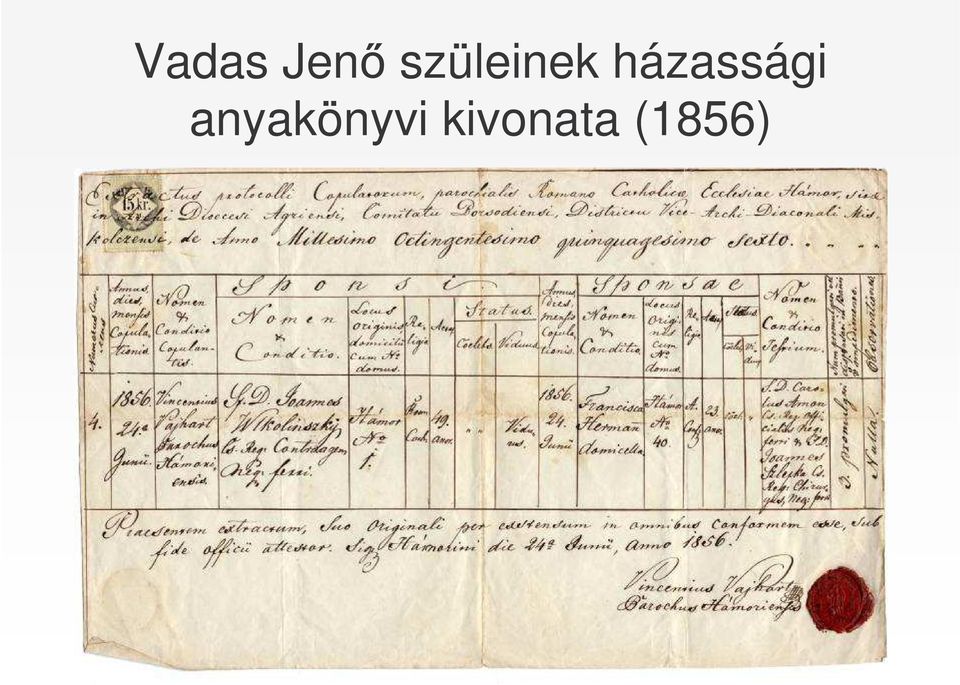 Vadas Jenő szüleinek házassági
anyakönyvi kivonata (1856)
15 kr.
protocolli Copulatorum, parochialis Romano Catholicae Ecclesiae Hámor, sitae
in Dioecesi Agriensi, Comitatu Borsodiensi, Districtu Vice-Archi-Diaconali Mis-
kolczensi, de Anno Millesimo Octingentesimo quinquagesimo Sexto.
Annus, dies, mensis Copulationis
Nomen & Conditio Copulantis.
Sponsi
Nomen & Conditio.
Locus originis domicilii cum No domus.
Religio
Status.
Coelebs
Viduus.
Annus, dies, mensis Copulationis.
Sponsae
Nomen & Conditio
Locus Originis cum No domus.
Religio
Status.
Nomen & Conditio Testium.
Observationes
4.
1856. 24.a Junii.
Vincentius Vajhart Parochus Hámoriensis.
Sp. D. Joannes Wlkolinszky Cs. Reg. Contraagens Neg. ferri.
Hámor No 1.
Rom. Cath.
49. anor.
" "
Viduus.
1856. 24. Junii
Francisca Herman domicella
Hámor No 40.
A. Conf.
23. anor.
"
S. D. Carolus Amon Cs. Reg. Officialis Neg: ferri & Joannes Szlejka Cs. Reg: Chirurgus, Neg: ferri
3. promulg:
Nulla.
Praesentem extractum, Suo Originali per extensum in omnibus conformem esse, sub
fide officii attestor. Sig. Hámorini die 24a Junii, anno 1856.
Vincentius Vajhart
Parochus Hámoriensis